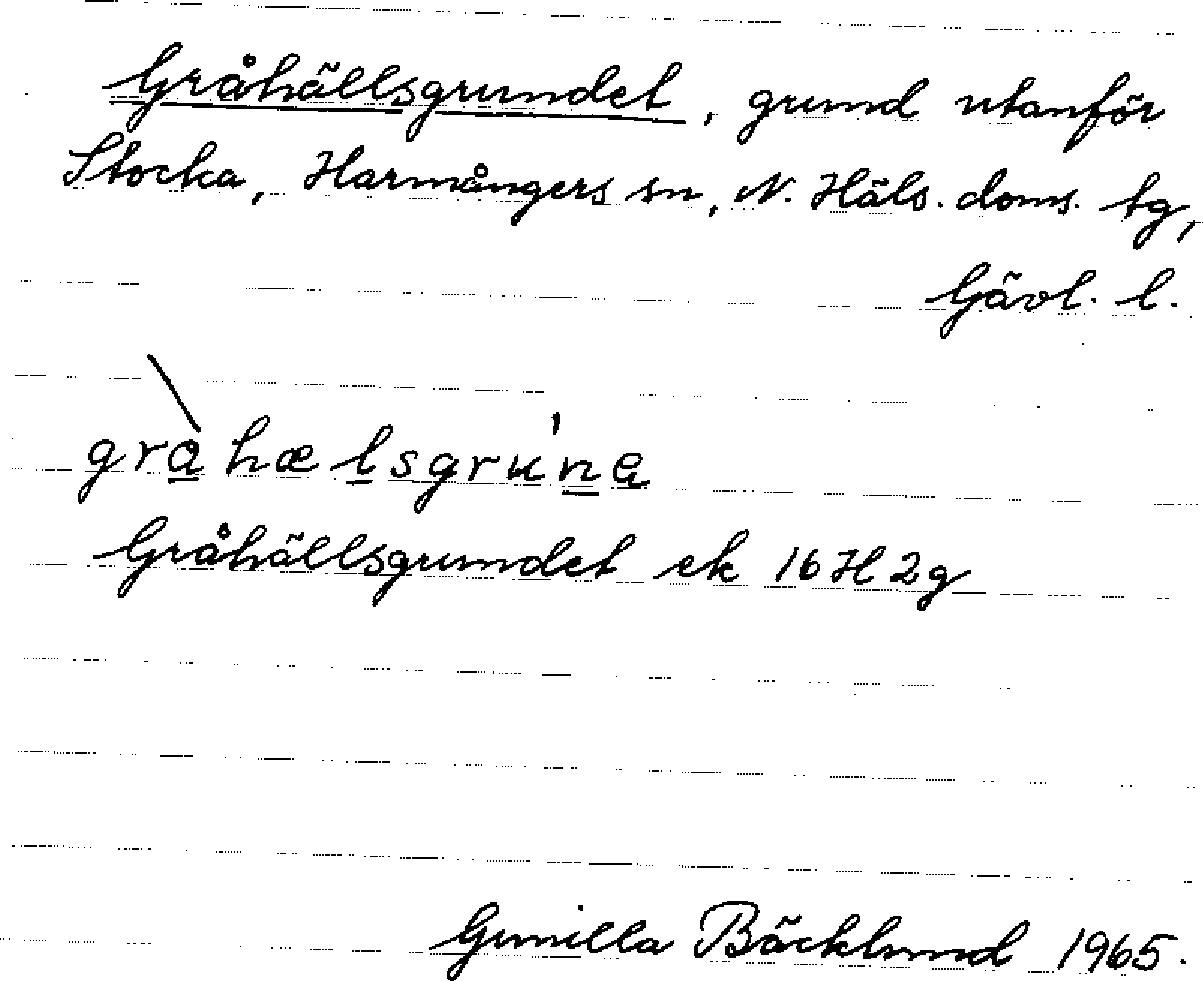 Gråhällsgrundet, grund utanför
Stocka, Harmångers sn, N. Häls. doms. tg,
Gävl. l.
gràhælsgrúna
Gråhällsgrundet ek 16H2g
Gunilla Bäcklund 1965.